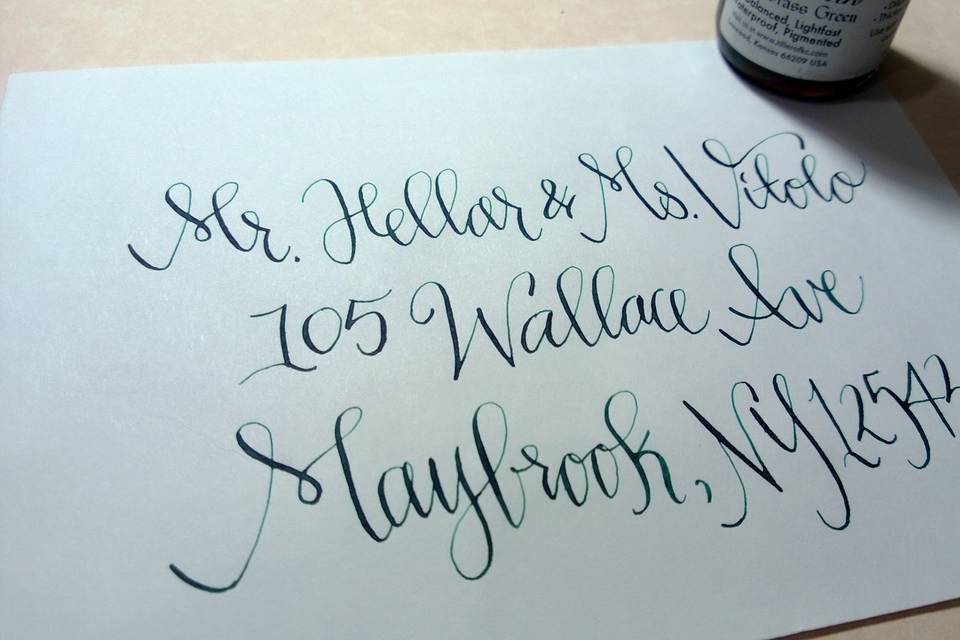 Grass Green
Balanced, Lightfast
Waterproof, Pigmented
www.zillerofkc.com
Kansas 66209 USA
Mr. Hellar & Ms. Vitolo
105 Wallace Ave
Maybrook, NY 12543